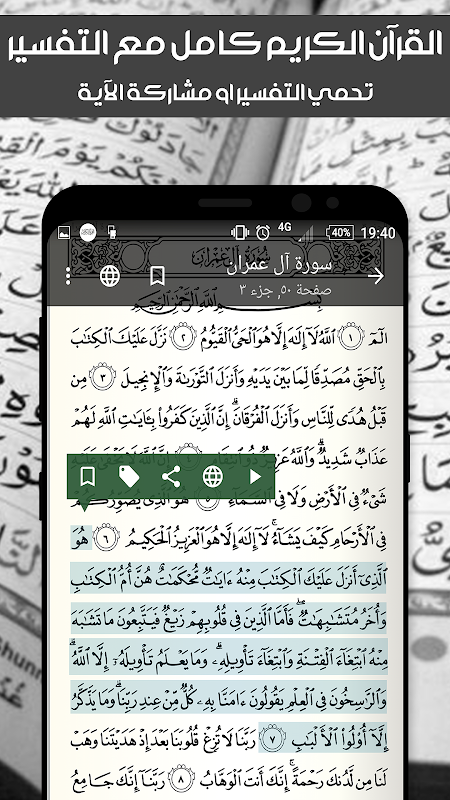 القرآن الكريم كامل مع التفسير
تحميل التفسير او مشاركة الآية
4G 40% 19:40
سورة آل عمران
صفحة ٥٠, جزء ٣
بِسْمِ اللَّهِ الرَّحْمَٰنِ الرَّحِيمِ
الٓمٓ ١ ٱللَّهُ لَآ إِلَٰهَ إِلَّا هُوَ ٱلْحَىُّ ٱلْقَيُّومُ ٢ نَزَّلَ عَلَيْكَ ٱلْكِتَٰبَ
بِٱلْحَقِّ مُصَدِّقًا لِّمَا بَيْنَ يَدَيْهِ وَأَنزَلَ ٱلتَّوْرَىٰةَ وَٱلْإِنجِيلَ ٣ مِن
قَبْلُ هُدًى لِّلنَّاسِ وَأَنزَلَ ٱلْفُرْقَانَ ۗ إِنَّ ٱلَّذِينَ كَفَرُوا۟ بِـَٔايَٰتِ ٱللَّهِ لَهُمْ
عَذَابٌ شَدِيدٌ ۗ وَٱللَّهُ عَزِيزٌ ذُو ٱنتِقَامٍ ٤ إِنَّ ٱللَّهَ لَا يَخْفَىٰ عَلَيْهِ
شَىْءٌ فِى ٱلْأَرْضِ وَلَا فِى ٱلسَّمَآءِ ٥ هُوَ ٱلَّذِى يُصَوِّرُكُمْ
فِى ٱلْأَرْحَامِ كَيْفَ يَشَآءُ ۚ لَآ إِلَٰهَ إِلَّا هُوَ ٱلْعَزِيزُ ٱلْحَكِيمُ ٦ هُوَ
ٱلَّذِىٓ أَنزَلَ عَلَيْكَ ٱلْكِتَٰبَ مِنْهُ ءَايَٰتٌ مُّحْكَمَٰتٌ هُنَّ أُمُّ ٱلْكِتَٰبِ
وَأُخَرُ مُتَشَٰبِهَٰتٌ ۖ فَأَمَّا ٱلَّذِينَ فِى قُلُوبِهِمْ زَيْغٌ فَيَتَّبِعُونَ مَا تَشَٰبَهَ
مِنْهُ ٱبْتِغَآءَ ٱلْفِتْنَةِ وَٱبْتِغَآءَ تَأْوِيلِهِۦ ۗ وَمَا يَعْلَمُ تَأْوِيلَهُۥٓ إِلَّا ٱللَّهُ ۗ
وَٱلرَّٰسِخُونَ فِى ٱلْعِلْمِ يَقُولُونَ ءَامَنَّا بِهِۦ كُلٌّ مِّنْ عِندِ رَبِّنَا ۗ وَمَا يَذَّكَّرُ
إِلَّآ أُو۟لُوا۟ ٱلْأَلْبَٰبِ ٧ رَبَّنَا لَا تُزِغْ قُلُوبَنَا بَعْدَ إِذْ هَدَيْتَنَا وَهَبْ
لَنَا مِن لَّدُنكَ رَحْمَةً ۚ إِنَّكَ أَنتَ ٱلْوَهَّابُ ٨ رَبَّنَآ إِنَّكَ جَامِعُ